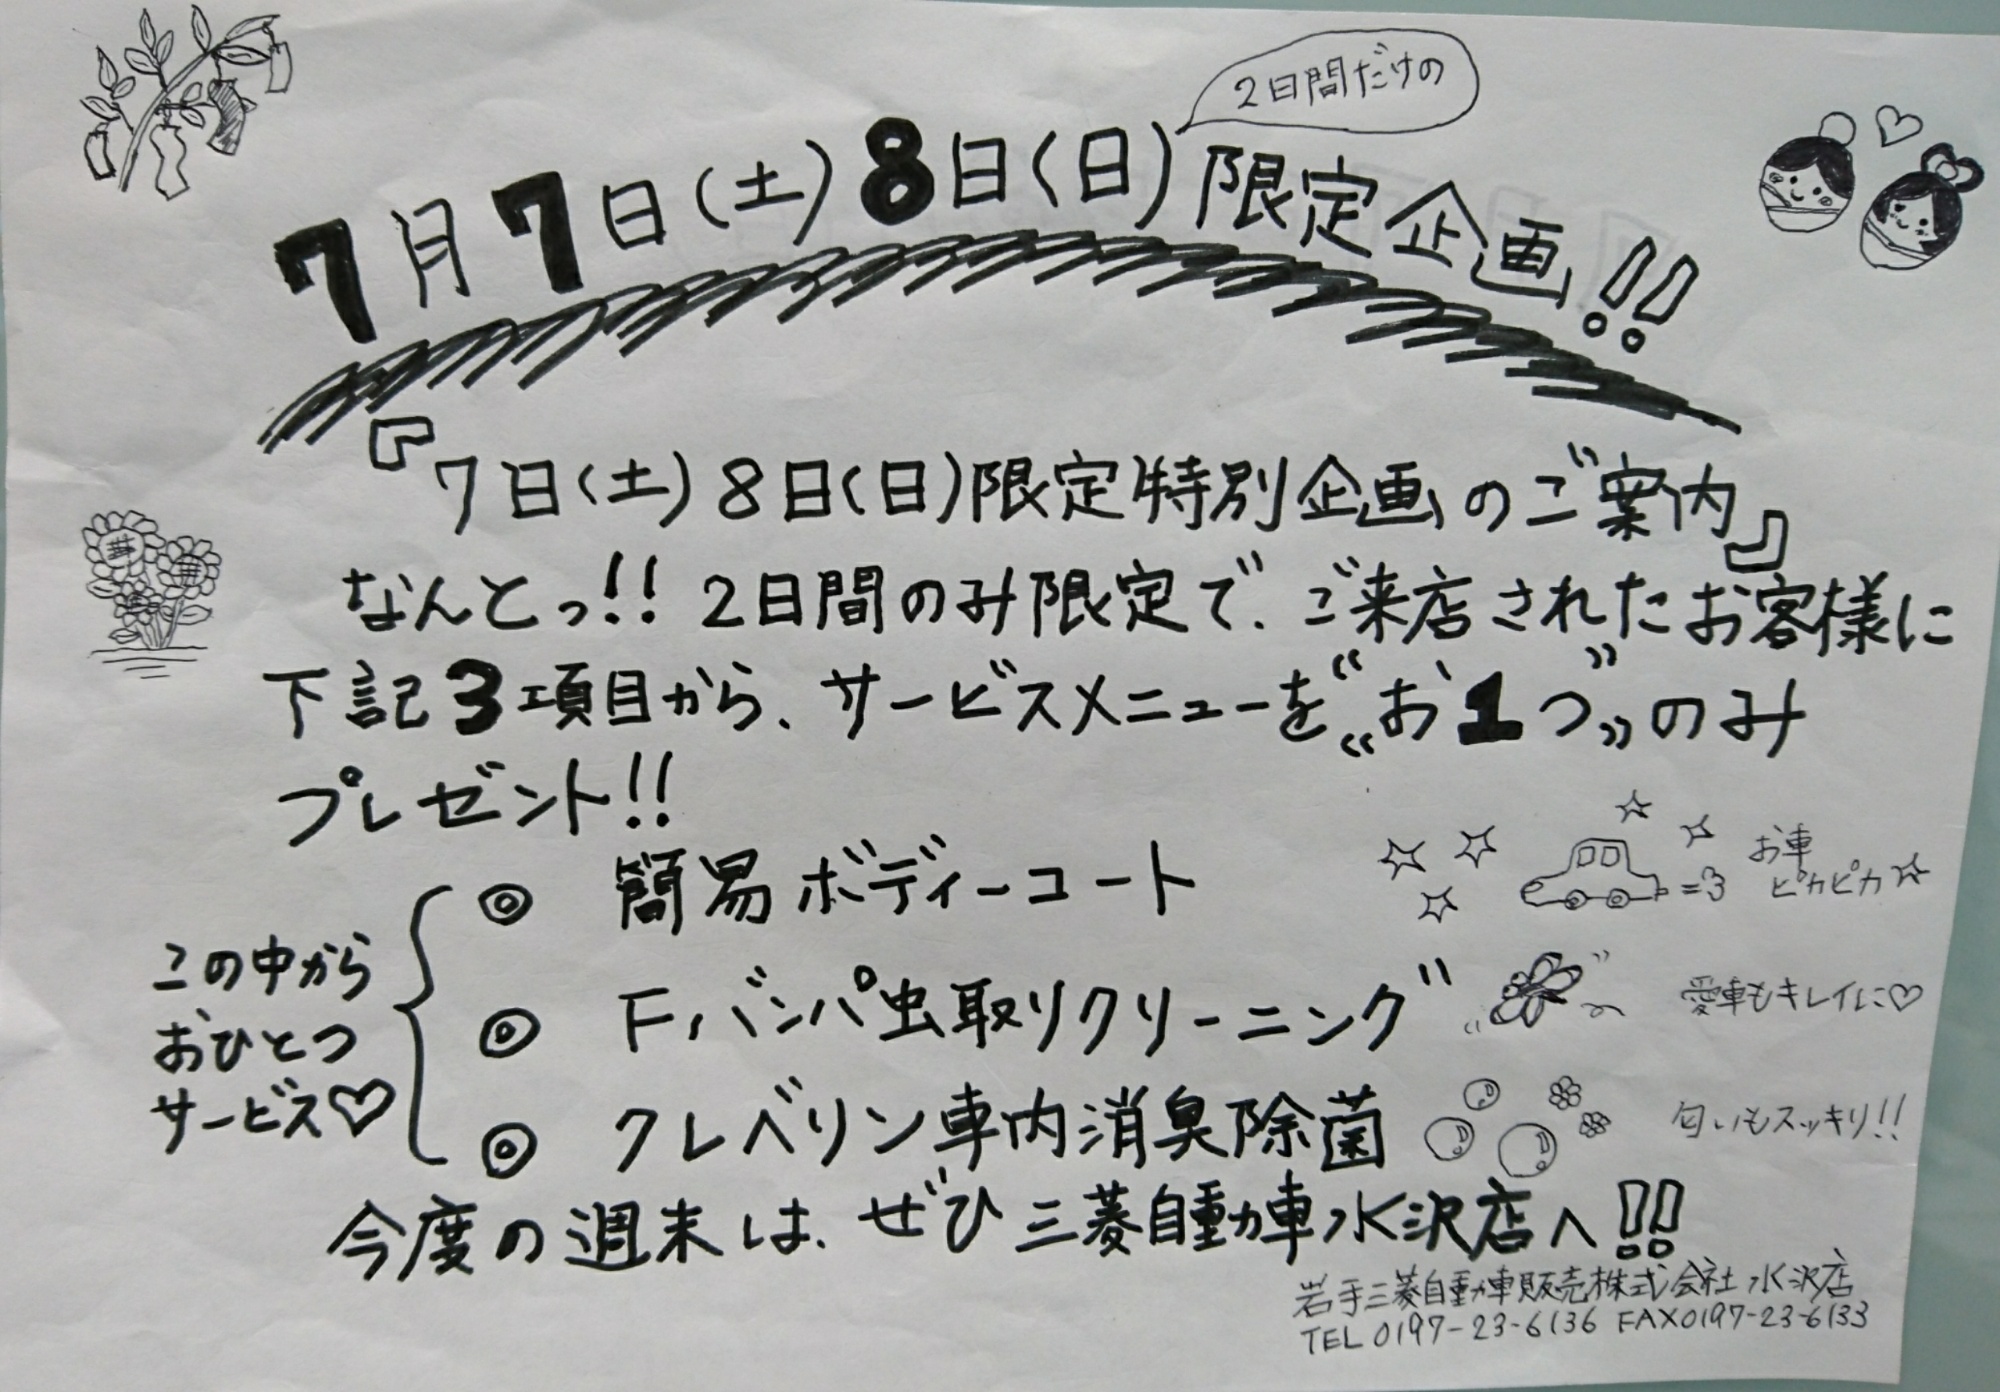 2日間だけの
7月7日(土)8日(日)限定企画!!
『7日(土)8日(日)限定特別企画のご案内』
なんとっ!!2日間のみ限定で、ご来店されたお客様に
下記3項目から、サービスメニューを“お1つ”のみ
プレゼント!!
この中から
おひとつ
サービス♡
◎ 簡易ボディーコート
お車
ピカピカ☆
◎ F,バンパ虫取りクリーニング
愛車もキレイに♡
◎ クレベリン車内消臭除菌
匂いもスッキリ!!
今度の週末は、ぜひ三菱自動車水沢店へ!!
岩手三菱自動車販売株式会社水沢店
TEL 0197-23-6136 FAX0197-23-6133